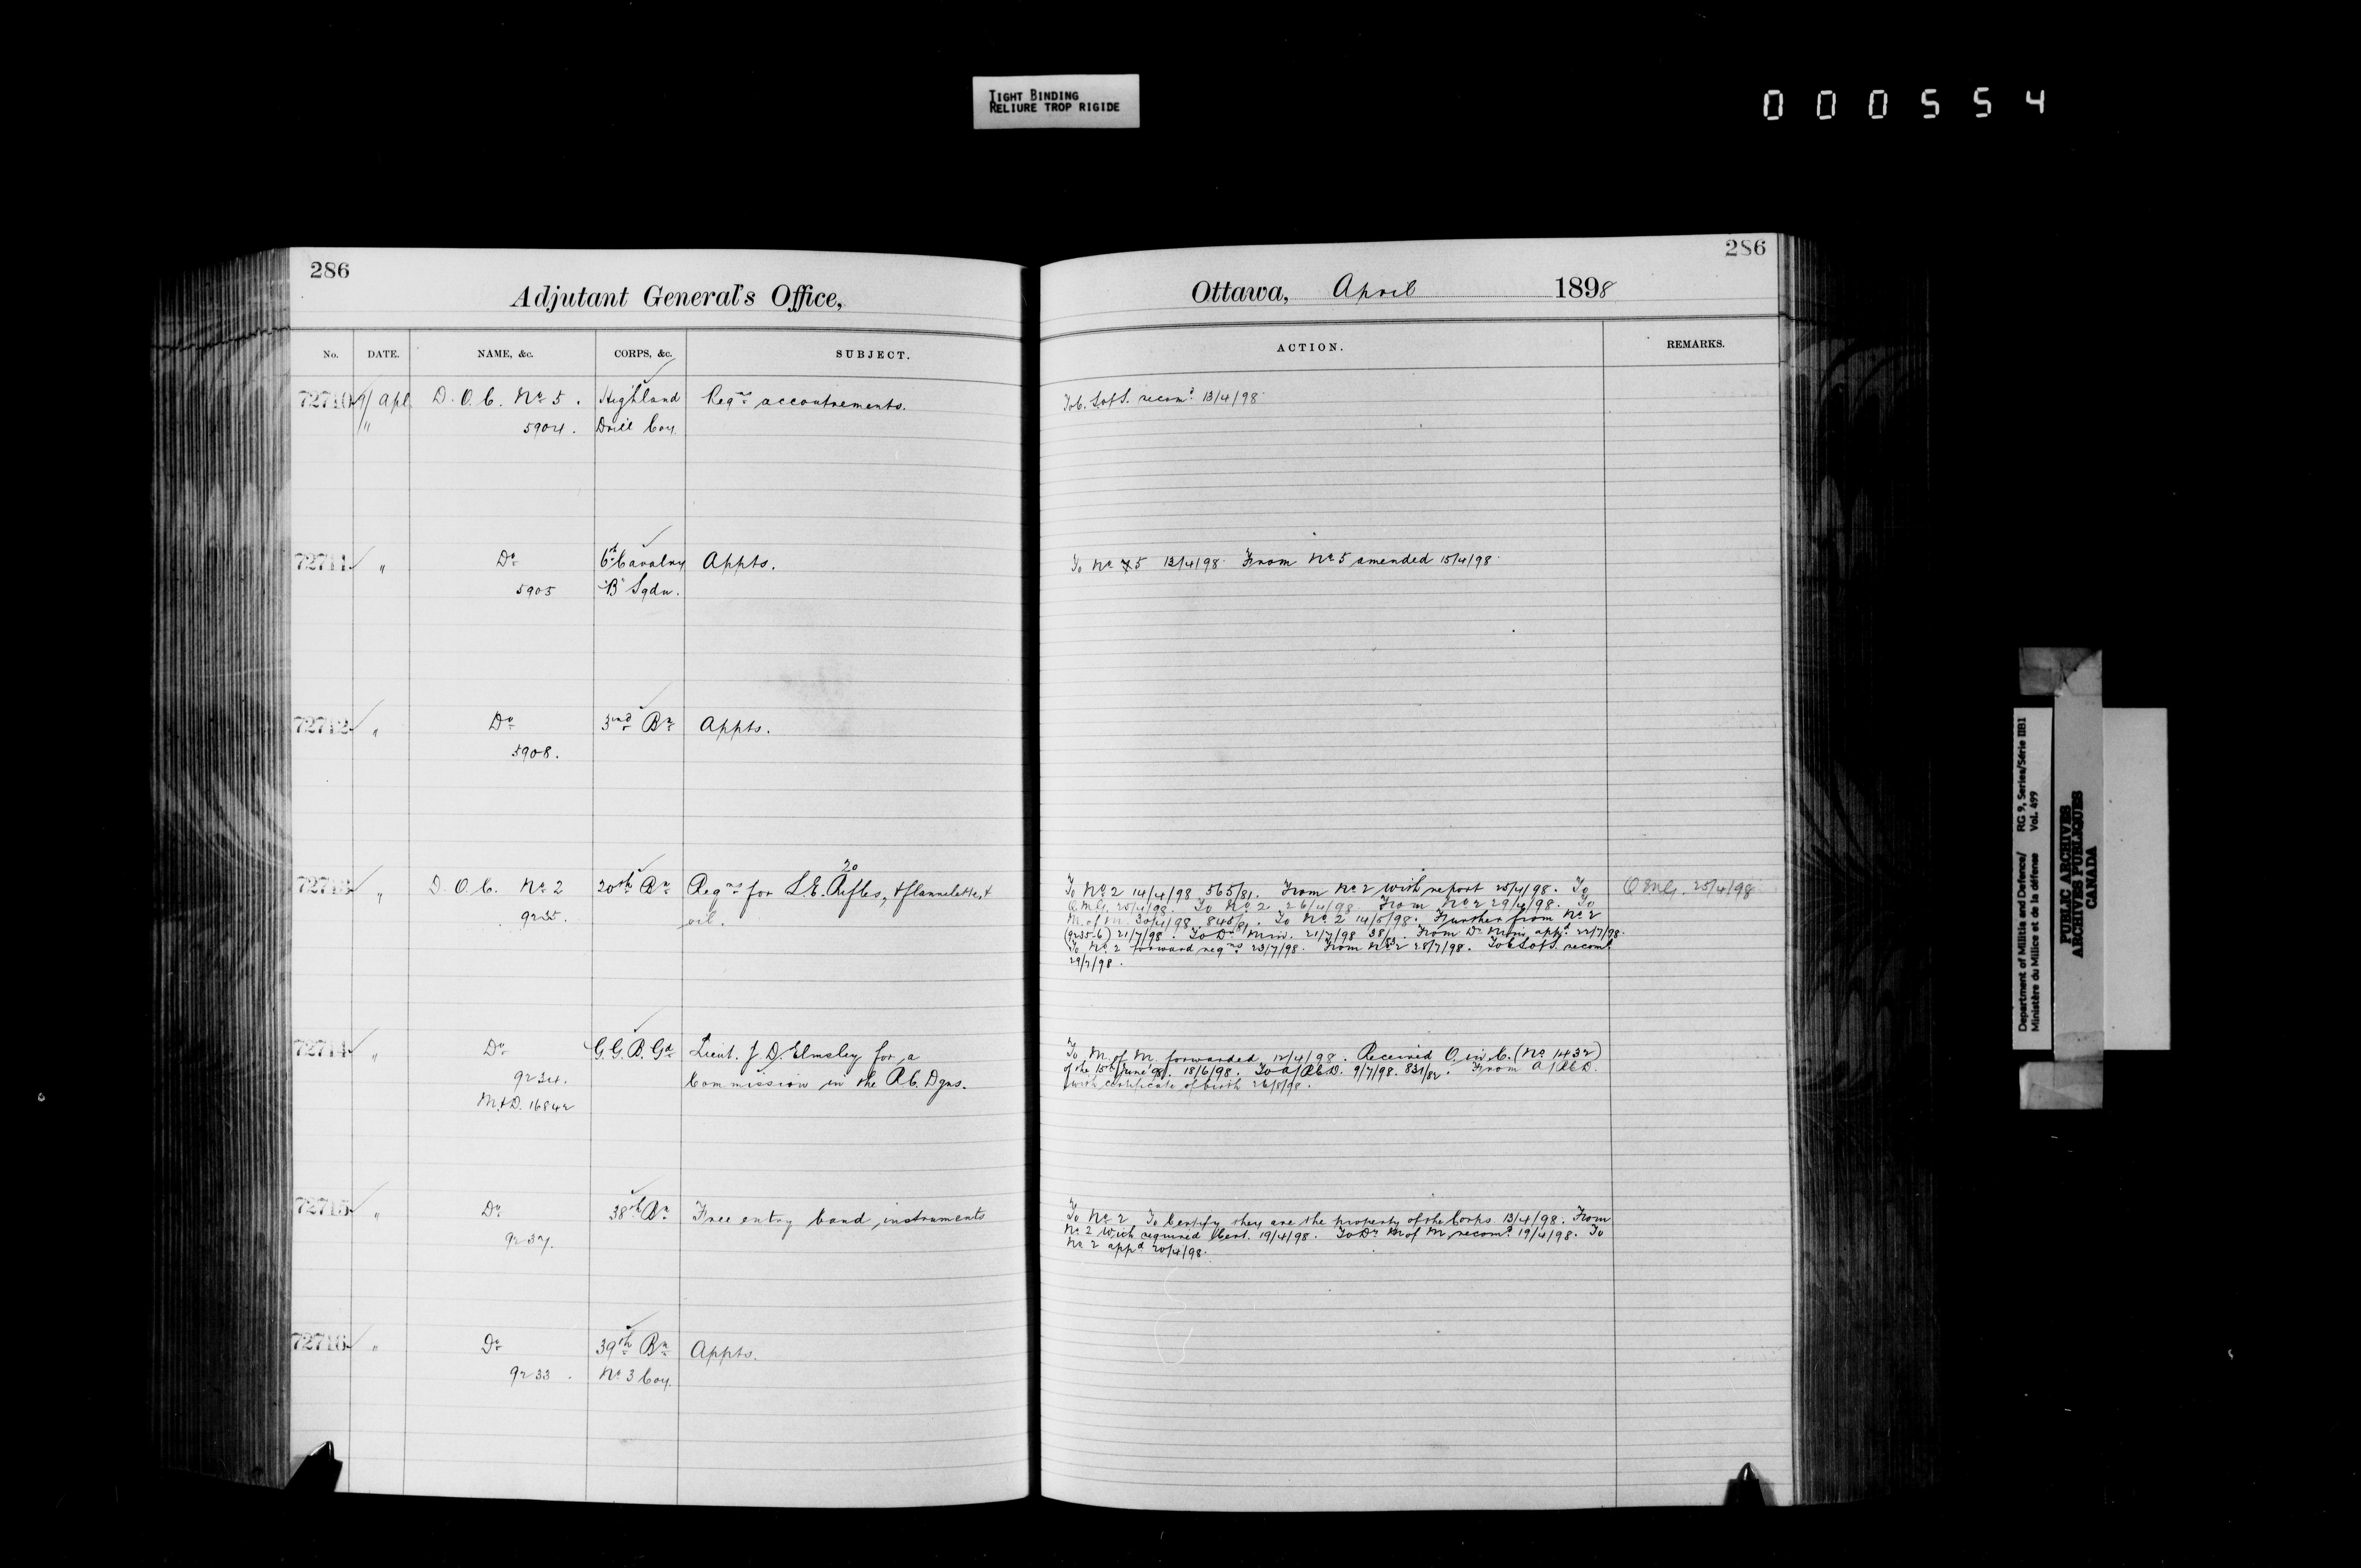 TIGHT BINDING
RELIURE TROP RIGIDE
000554
286
Adjutant General's Office,
No. DATE. NAME, &c. CORPS, &c. SUBJECT.
72710 9/ Apl D.O.C. No 5. Highland Reqns accoutrements.
" 5904. Drill Coy.
72711 " Do 6th Cavalry Appts.
5905 "B" Sqdn.
72712 " Do 3rd Bn Appts.
5908.
20
72713 " D.O.C. No 2 20th Bn Reqns for L.E. Rifles, & flannelette, &
9235. oil.
72714 " Do G.G.B.Gd Lieut. J. D. Elmsley for a
9234. Commission in the R.C. Dgns.
M.&D. 16842
72715 " Do 38th Bn Free entry band instruments
9237.
72716 " Do 39th Bn Appts.
9233. No 3 Coy.
286
Ottawa, April 1898
ACTION. REMARKS.
To C. S of S. recomd 13/4/98
To No 5 13/4/98. From No 5 amended 15/4/98
To No 2 14/4/98 565/81. From No 2 with report 25/4/98. To Q.M.G. 25/4/98
Q.M.G. 25/4/98. To No 2 26/4/98. From No 2 29/4/98. To
M of M. 30/4/98. 845/81. To No 2 14/5/98. Further from No 2
(9235-6) 21/7/98. To Dr Min. 21/7/98 38/83. From Dr Min appd 22/7/98.
To No 2 forward reqns 23/7/98. From No 2 28/7/98. To C. S of S. recomd
29/7/98.
To M. of M. forwarded 12/4/98. Received O. in C. (No 1432)
of the 15th June 98. 18/6/98. To A/R.C.D. 9/7/98. 831/82. From A/R.C.D.
with certificate of birth 26/8/98.
To No 2 To Certify they are the property of the Corps 13/4/98. From
No 2 with required Cert. 19/4/98. To Dr M of M recomd 19/4/98. To
No 2 appd 20/4/98.
Department of Militia and Defence/ RG 9, Series/Série IIB1
Ministère du Milice et de la défense Vol. 499
PUBLIC ARCHIVES
ARCHIVES PUBLIQUES
CANADA